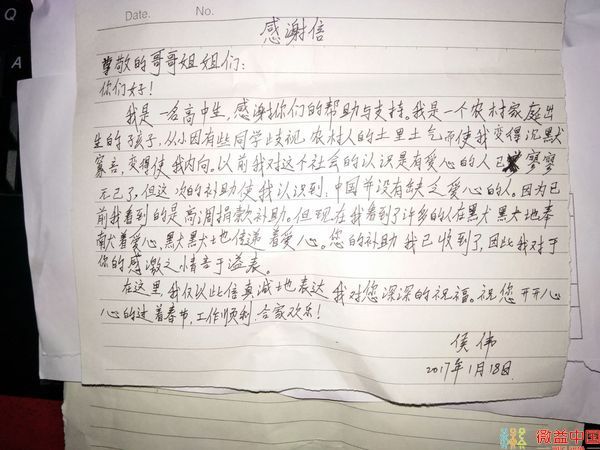 Date.
No.
感谢信
尊敬的哥哥姐姐们：
你们好！
我是一名高中生，感谢你们的帮助与支持。我是一个农村家庭出
生的孩子，从小因有些同学歧视农村人的土里土气而使我变得沉默
寡言，变得使我内向。以前我对这个社会的认识是有爱心的人已寥寥
无己了，但这次的补助使我认识到，中国并没有缺乏爱心的人。因为已
前我看到的是高调捐款补助。但现在我看到了许多的人在默默地奉
献着爱心，默默地传递着爱心。您的补助我已收到了，因此我对于
你的感激之情言于溢表。
在这里，我仅以此信真诚地表达我对您深深的祝福。祝您开开心
心的过着春节，工作顺利，合家欢乐！
侯伟
2017年1月18日
Q
A
微益中国